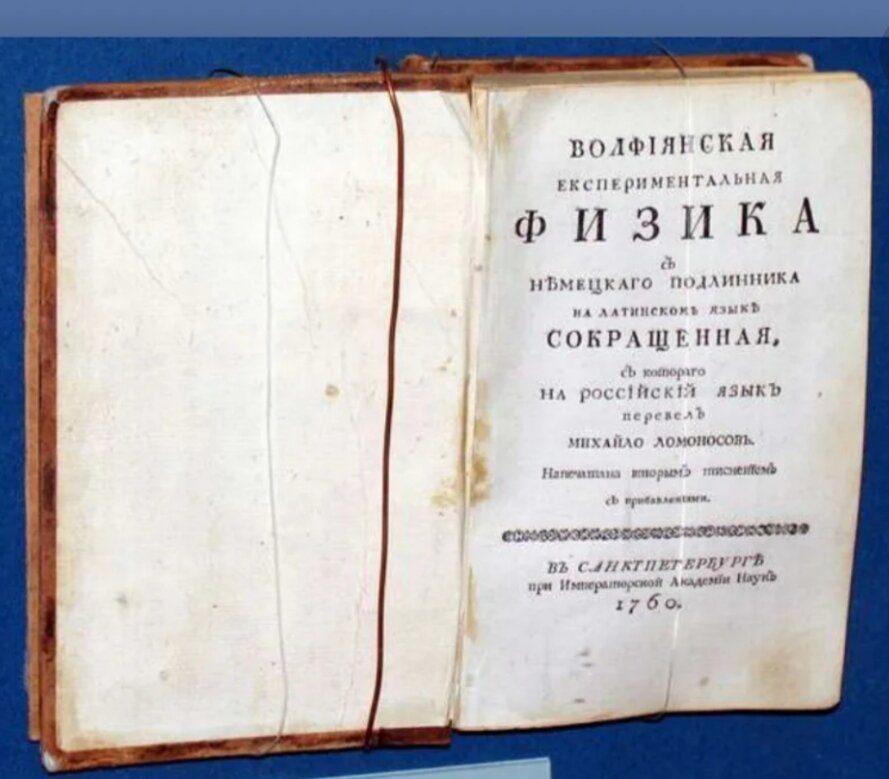 ВОЛФІЯНСКАЯ
ЕКСПЕРИМЕНТАЛЬНАЯ
ФИЗИКА
съ
НѢМЕЦКАГО ПОДЛИННИКА
НА ЛАТИНСКОМЪ ЯЗЫКѢ
СОКРАЩЕННАЯ,
съ котораго
НА РОССІЙСКІЙ ЯЗЫКЪ
перевелЪ
МИХАЙЛО ЛОМОНОСОВЪ.
Напечатана вторымЪ тисненіемЪ
съ прибавленіями.
ВЪ САНКТПЕТЕРБУРГѢ
при Императорской Академіи НаукЪ
1760.